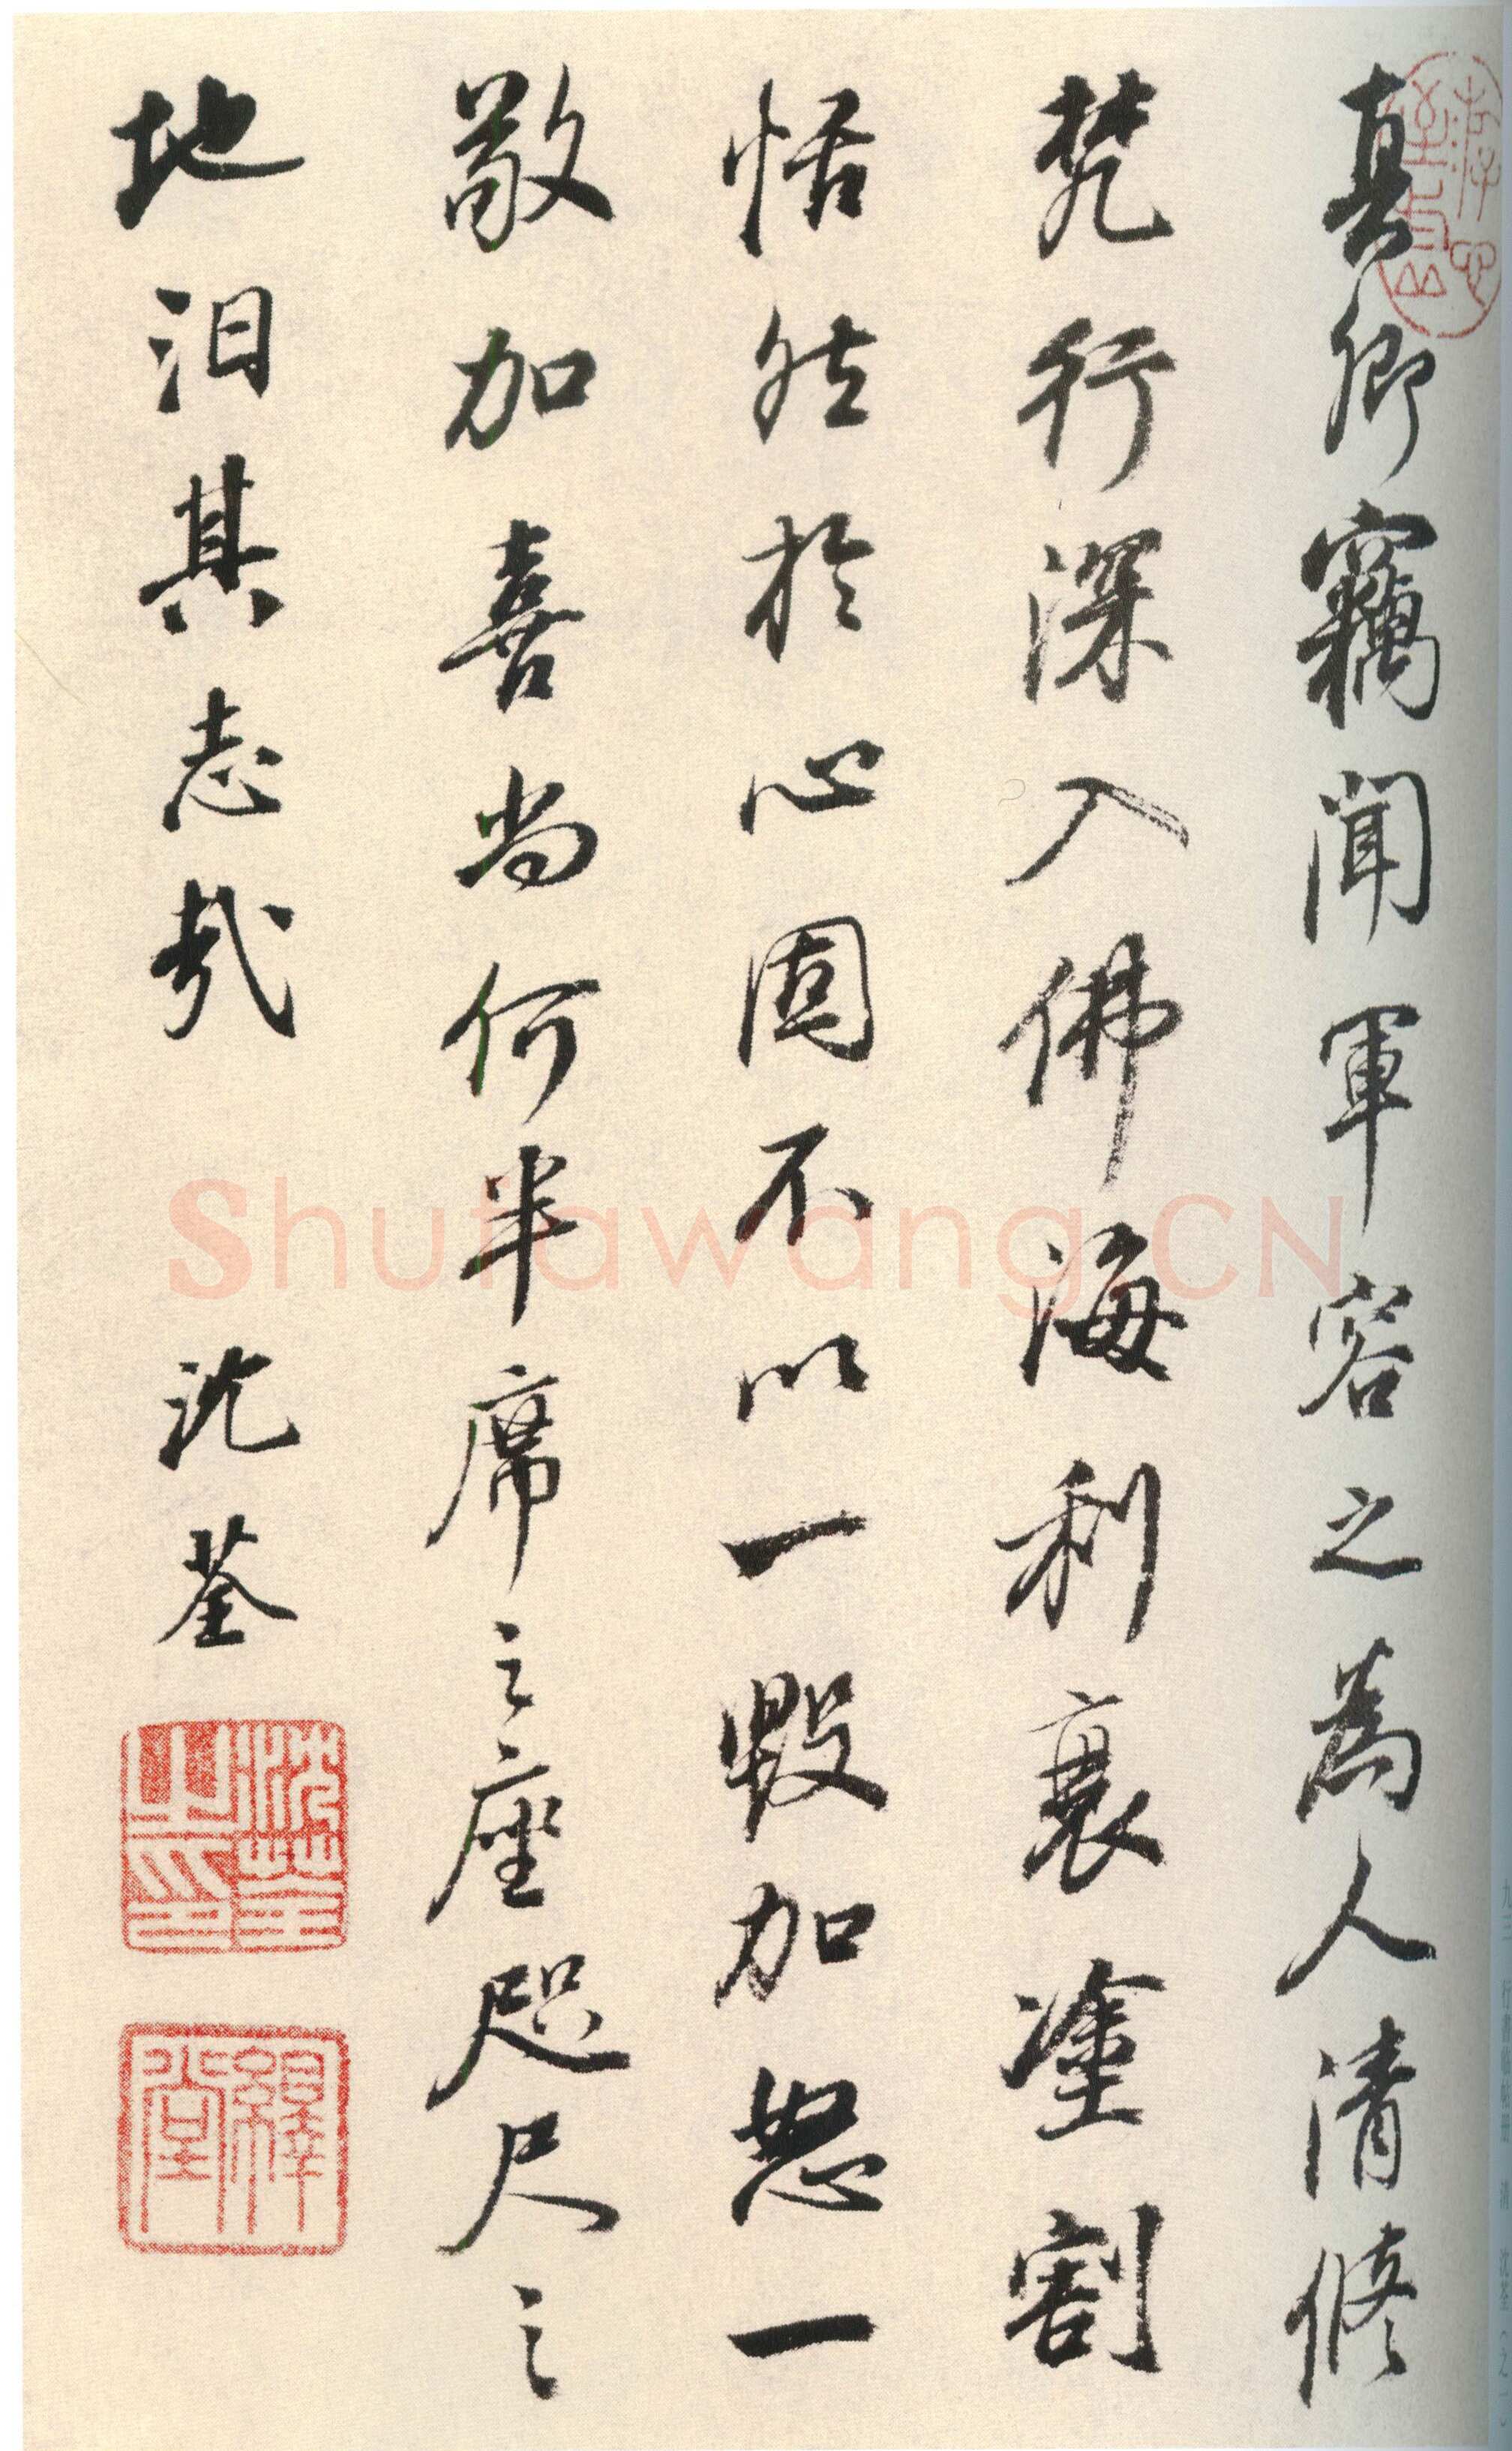 真卿竊聞軍容之為人清修
梵行深入佛海利衰塗割
恬然於心固不以一毀加怒一
敬加喜尚何半席之座咫尺之
地汨其志哉 沈荃
沈荃之印
繹堂
Shufawang.CN